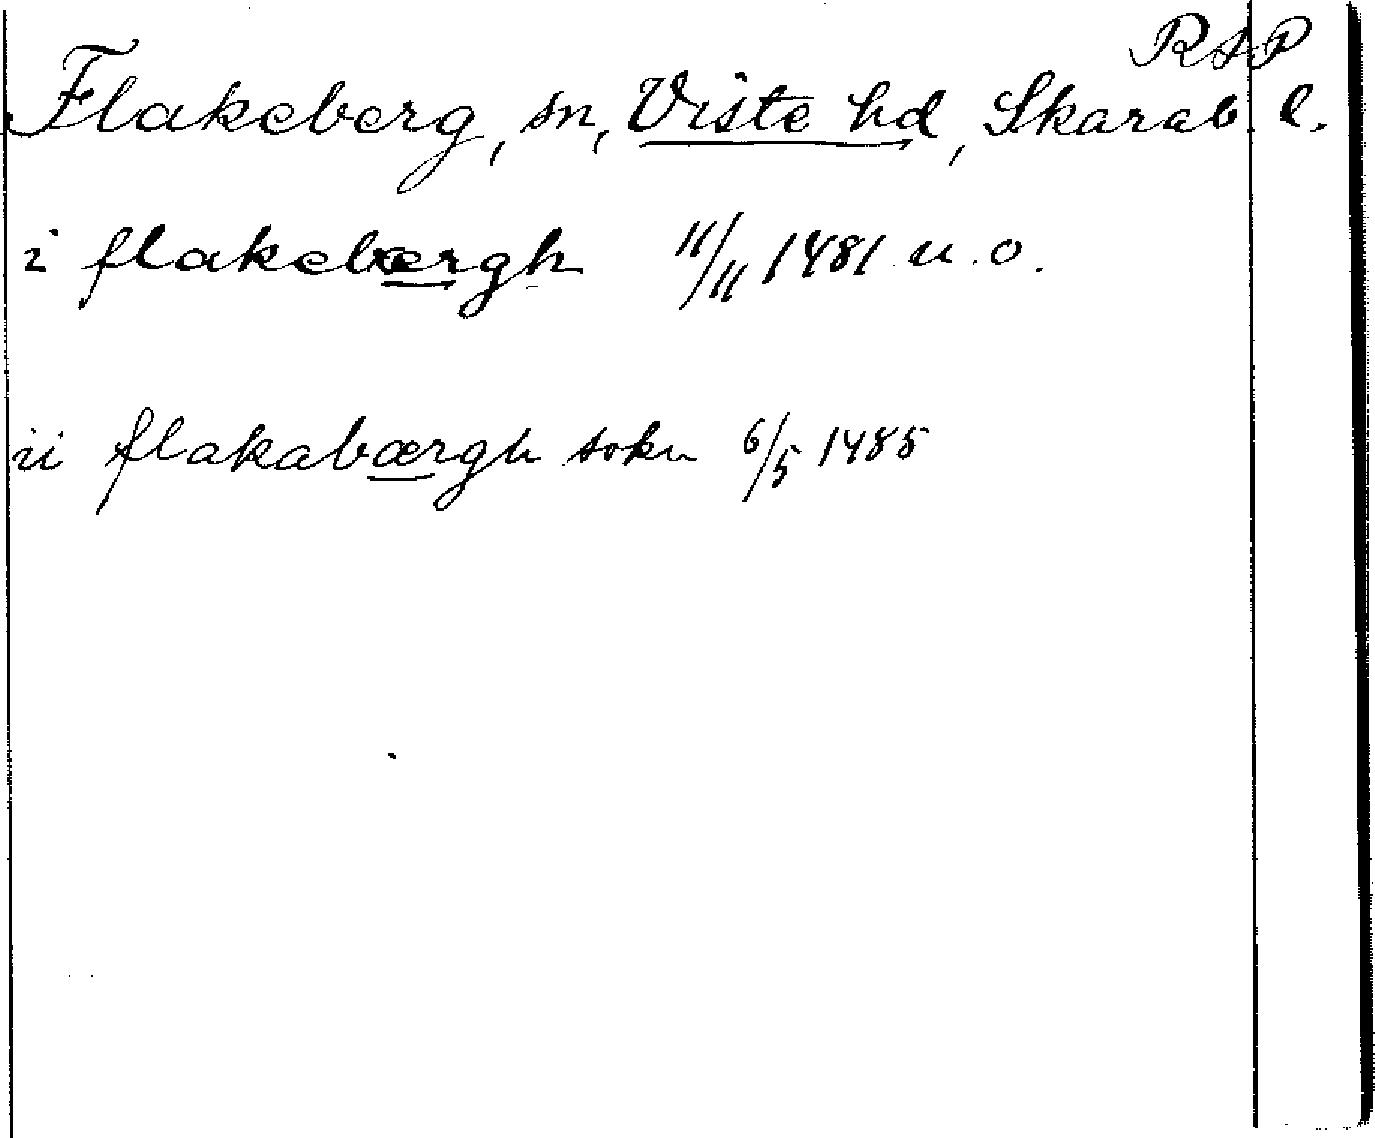 RAP
Flakeberg, sn, Viste hd, Skarab. l.
i flakebærgh 11/11 1481 u. o.
ii flakabærgh sokn 6/5 1485